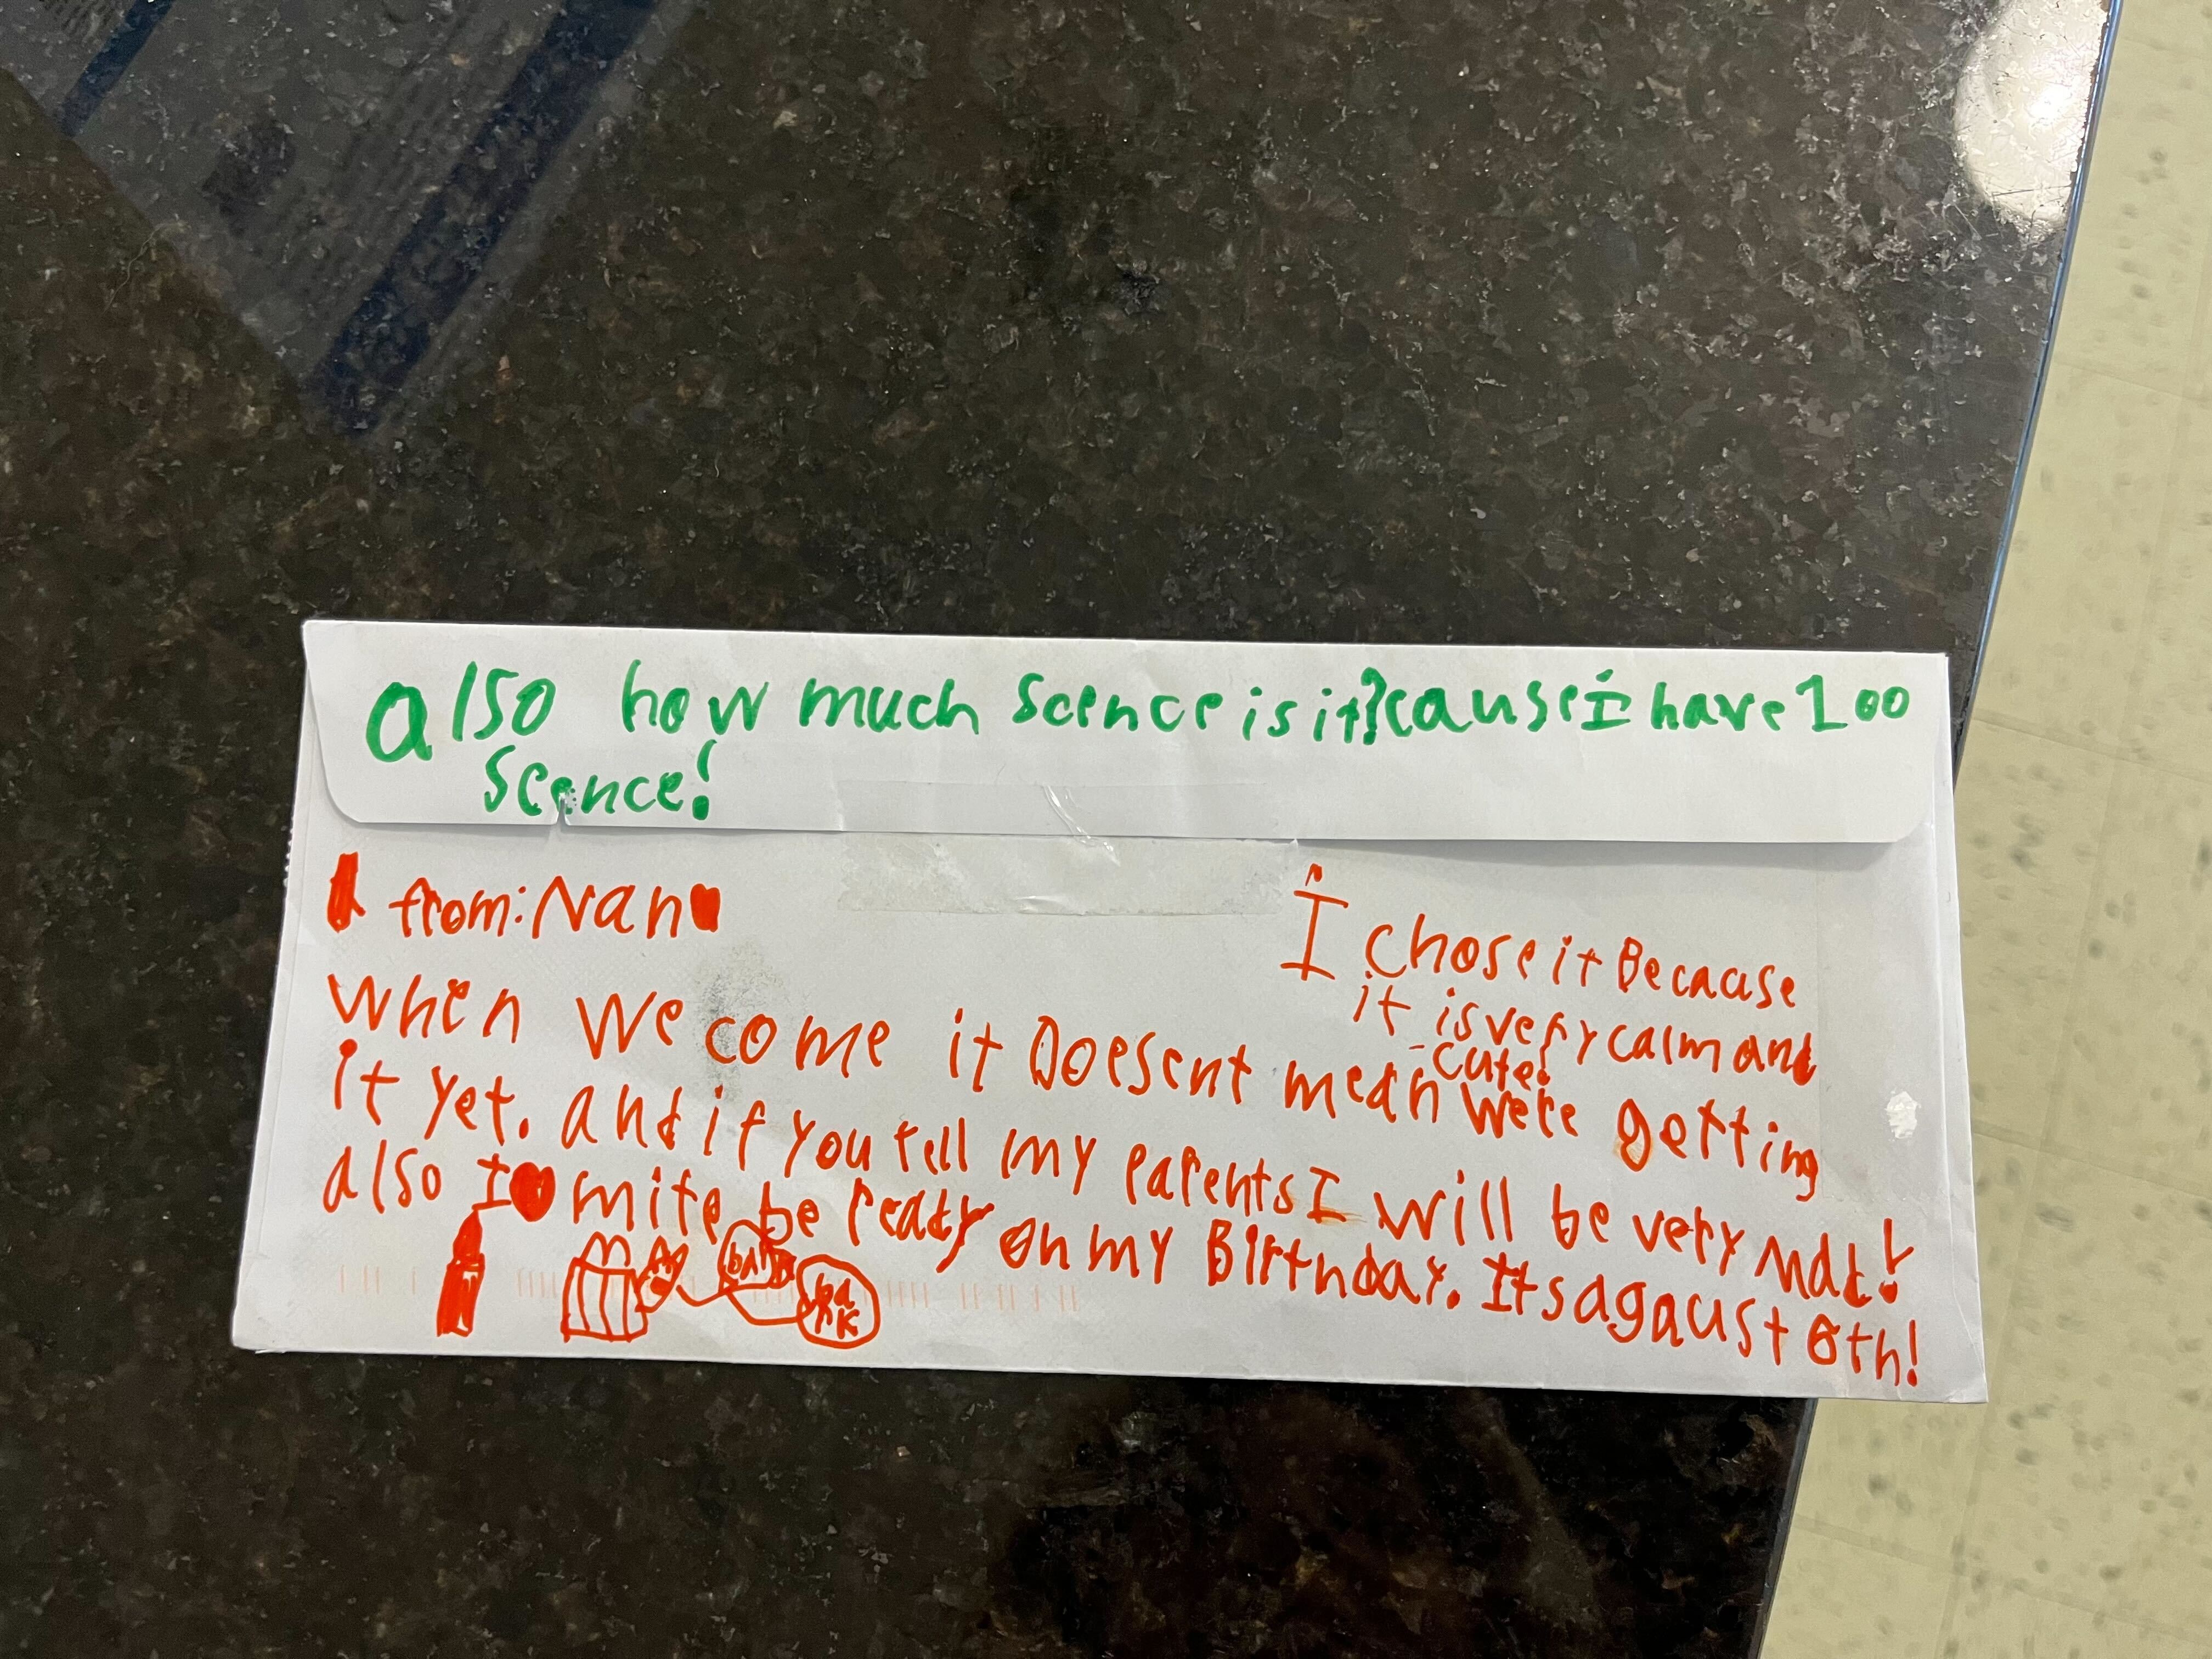 also how much scence is it? cause I have 100
scence!
from: Nan
I chose it Becacuse
it is very calm and
cute!
when we come it Doesent mean we're getting
it yet. and if you tell my parents I will be very mad!
also I mite be ready on my Birthday. Its agaust 6th!
bark
bark